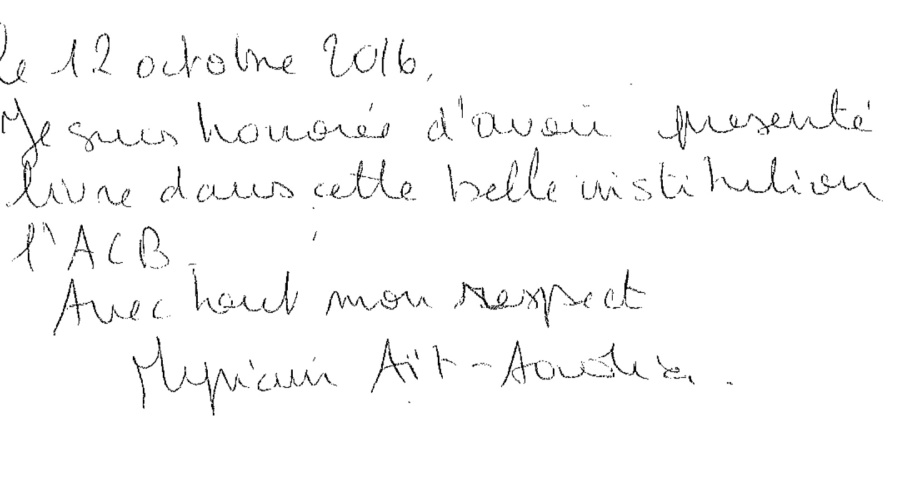 Le 12 octobre 2016,
Je suis honorée d'avoir presenté
livre dans cette belle institution
l'ACB.
Avec tout mon respect
Myriam Aït-Aoudia.